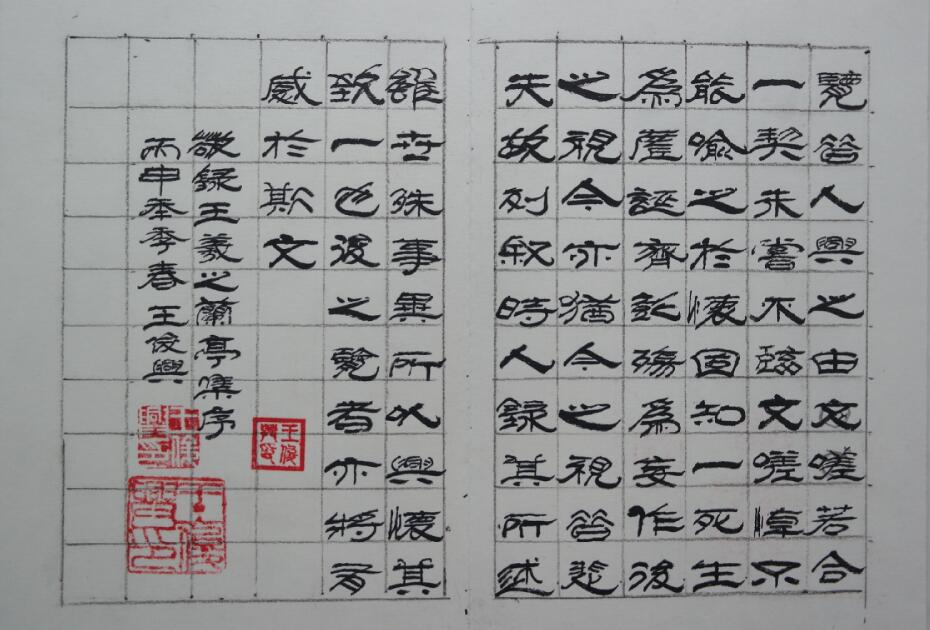 覽昔人興之由文嗟若合
一契未嘗不臨文嗟悼不
能喻之於懷固知一死生
為虛誕齊彭殤為妄作後
之視今亦猶今之視昔悲
夫故列敘時人錄其所述
雖世殊事異所以興懷其
致一也後之覽者亦將有
感於斯文
敬錄王羲之蘭亭集序
丙申年季春王俊興